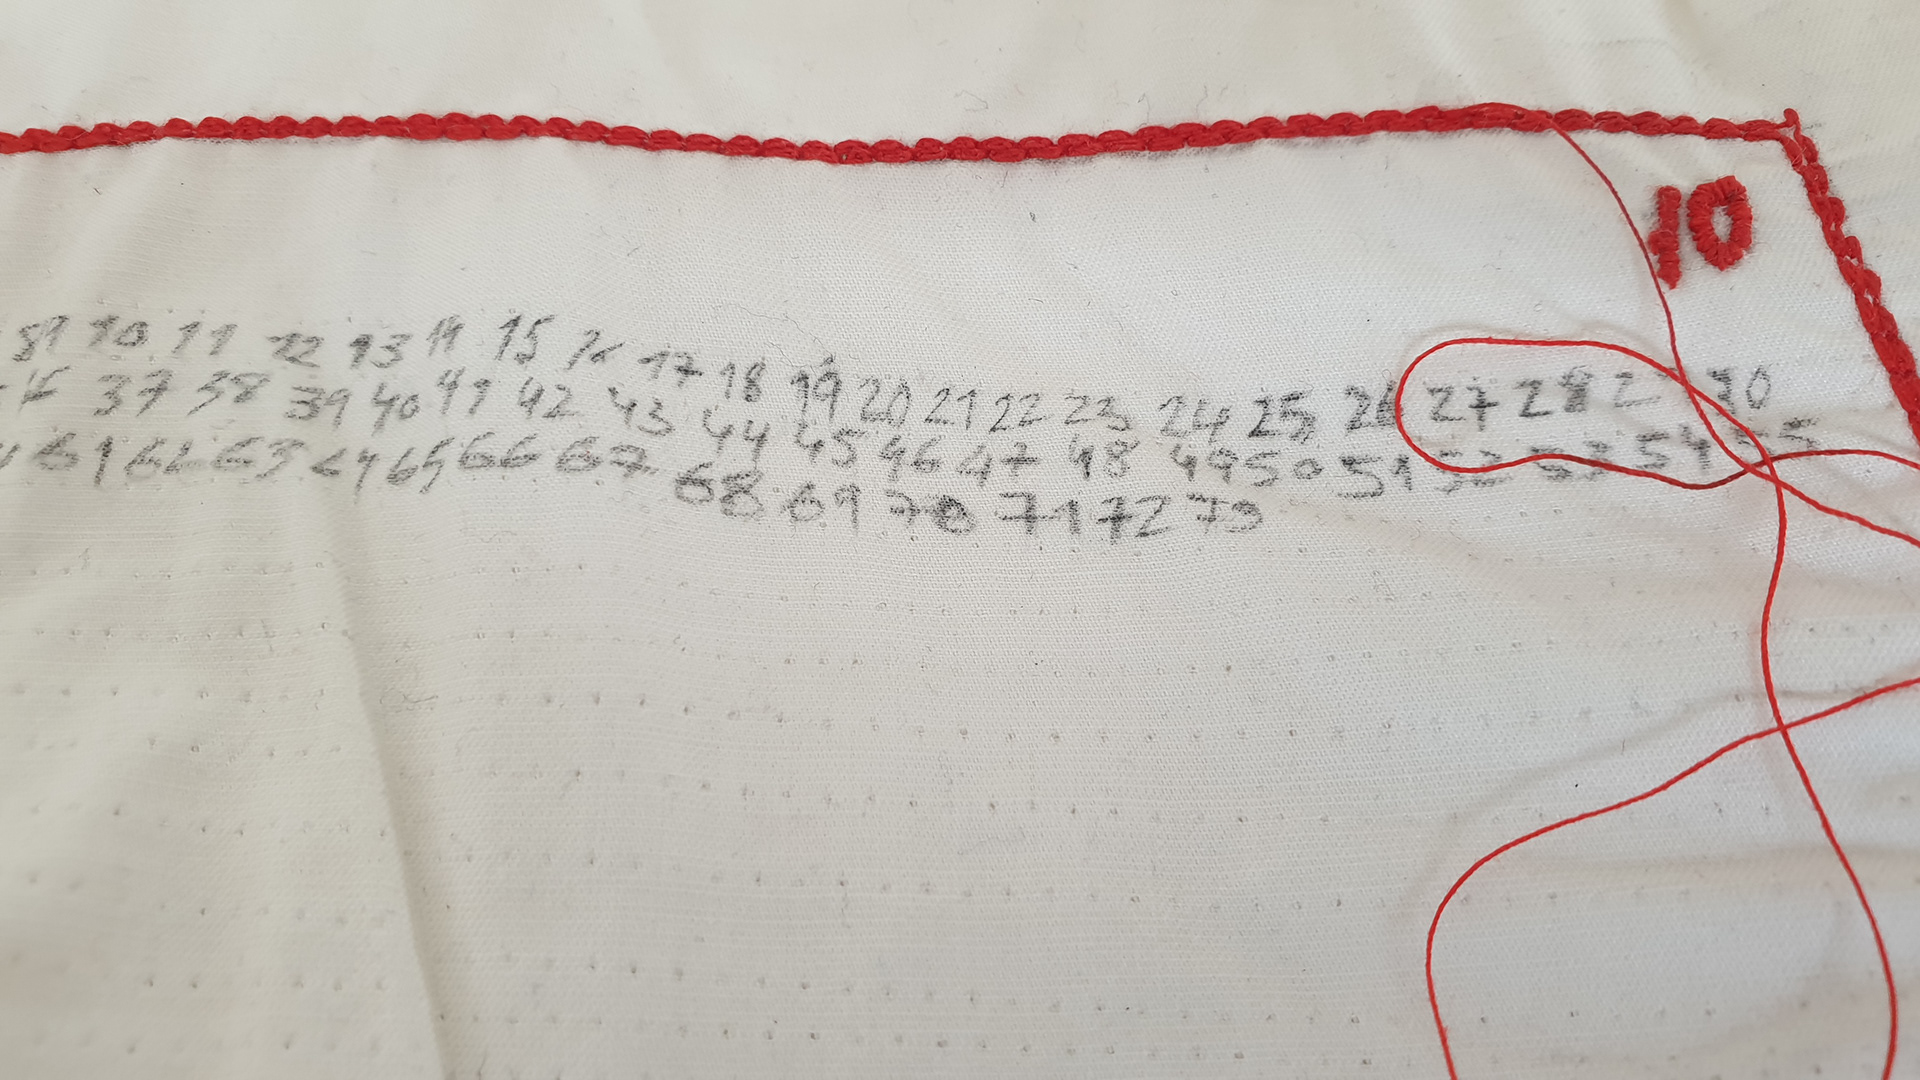 10
10 11 12 13 14 15 16 17 18 19 20 21 22 23 24 25 26 27 28 30
37 38 39 40 41 42 43 44 45 46 47 48 49 50 51 52 53 54 55
61 62 63 64 65 66 67 68 69 70 71 72 73